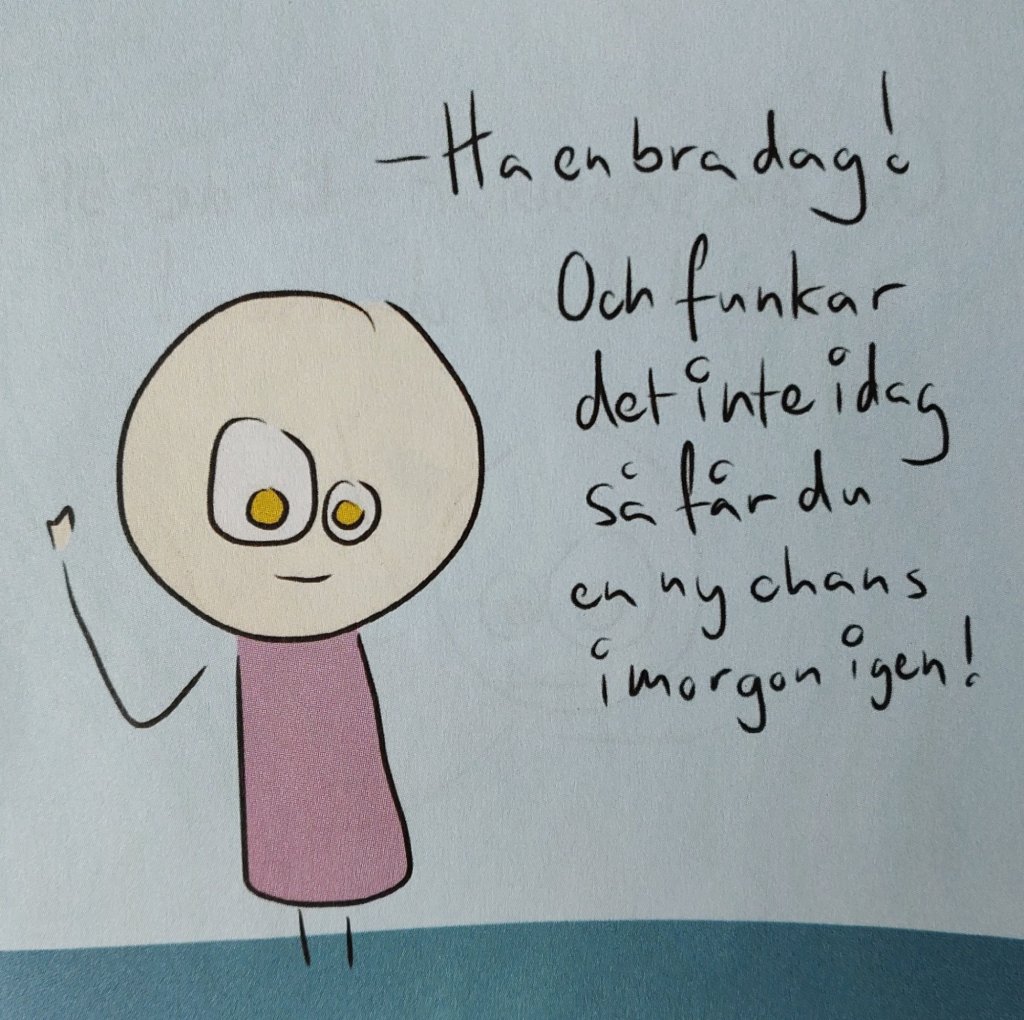 – Ha en bra dag!
Och funkar
det inte idag
så får du
en ny chans
imorgon igen!